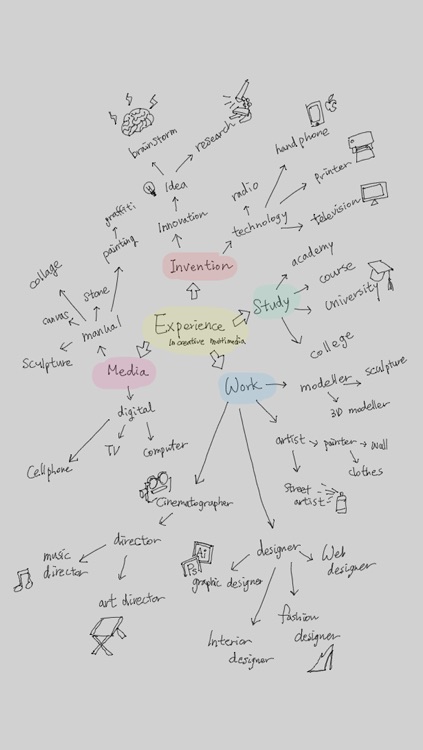 brainstorm
research
handphone
printer
Idea
radio
graffiti
Innovation
technology
television
painting
collage
stone
Invention
academy
course
university
canvas
manual
Study
Experience
In creative multimedia
college
Sculpture
Media
Work
modeller
sculpture
3D modeller
digital
artist
painter
wall
clothes
TV
computer
Cellphone
street
artist
Cinematographer
director
music
director
art director
Ai
Ps
designer
Web
designer
graphic designer
fashion
designer
Interior
designer